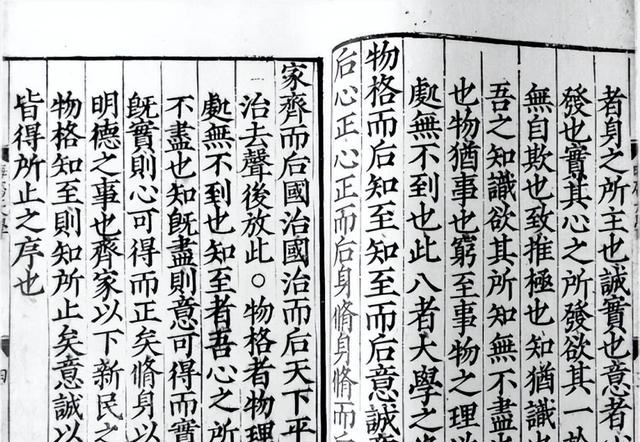 者身之所主也誠實也意者
發也實其心之所發欲其一
無自欺也致推極也知猶識
吾之知識欲其所知無不盡
也物猶事也窮至事物之理
處無不到也此八者大學之
物格而后知至知至而后意誠
后心正心正而后身脩身脩而
家齊而后國治國治而后天下平
治去聲後放此○物格者物理
處無不到也知至者吾心之所
不盡也知旣盡則意可得而實
旣實則心可得而正矣脩身以
明德之事也齊家以下新民之
物格知至則知所止矣意誠以
皆得所止之序也